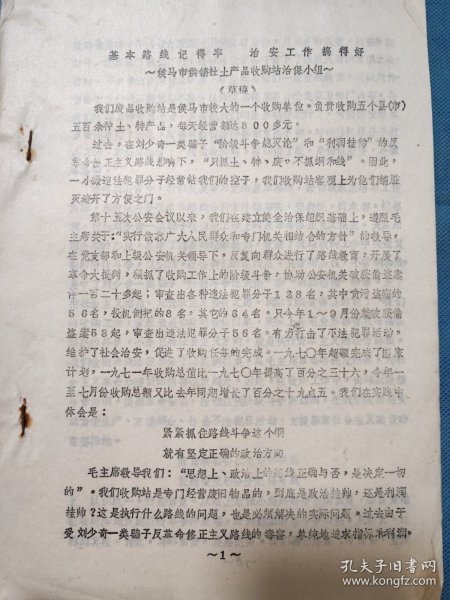 基本路线记得牢　治安工作搞得好
～侯马市供销社土产品收购站治保小组～
《草稿》
我们废品收购站是侯马市较大的一个收购单位。负责收购五个县（市）
五百余种土、特产品，每天经营额达800多元。
过去，在刘少奇一类骗子“阶级斗争熄灭论”和“利润挂帅”的反
革命修正主义路线影响下，“只抓土、特、废，不抓纲和线”。因此，
一小撮违法犯罪分子经常钻我们的空子，我们收购站客观上为他们销赃
灭迹开了方便之门。
第十五次公安会议以来，我们在建立健全治保组织基础上，遵照毛
主席关于：“实行依靠广大人民群众和专门机关相结合的方针”的教导，
在党支部和上级公安机关领导下，反复向群众进行了路线教育，开展了
革命大批判，狠抓了收购工作上的阶级斗争，协助公安机关破案
一百二十多起；审查出各种违法犯罪分子128名。其中贪污盗窃的
56名，投机倒把的8名，其它的64名。只今年1～9月份就破获偷
盗案53起，审查出违法犯罪分子56名。有力打击了不法犯罪活动，
维护了社会治安，促进了收购任务的完成。一九七〇年超额完成了国家
计划，一九七一年收购总值比一九七〇年提高了百分之三十六，今年一
至七月份收购总额又比去年同期增长了百分之十九点五。我们在实践中
体会是：
紧紧抓住路线斗争这个纲
就有坚定正确的政治方向
毛主席教导我们：“思想上、政治上的路线正确与否，是决定一切
的”。我们收购站是专门经营废旧物品的，到底是政治挂帅，还是利润
挂帅？这是执行什么路线的问题，也是必须解决的实际问题。过去由于
受刘少奇一类骗子反革命修正主义路线的毒害，单纯地追求指标和利润。
～1～
孔夫子旧书网